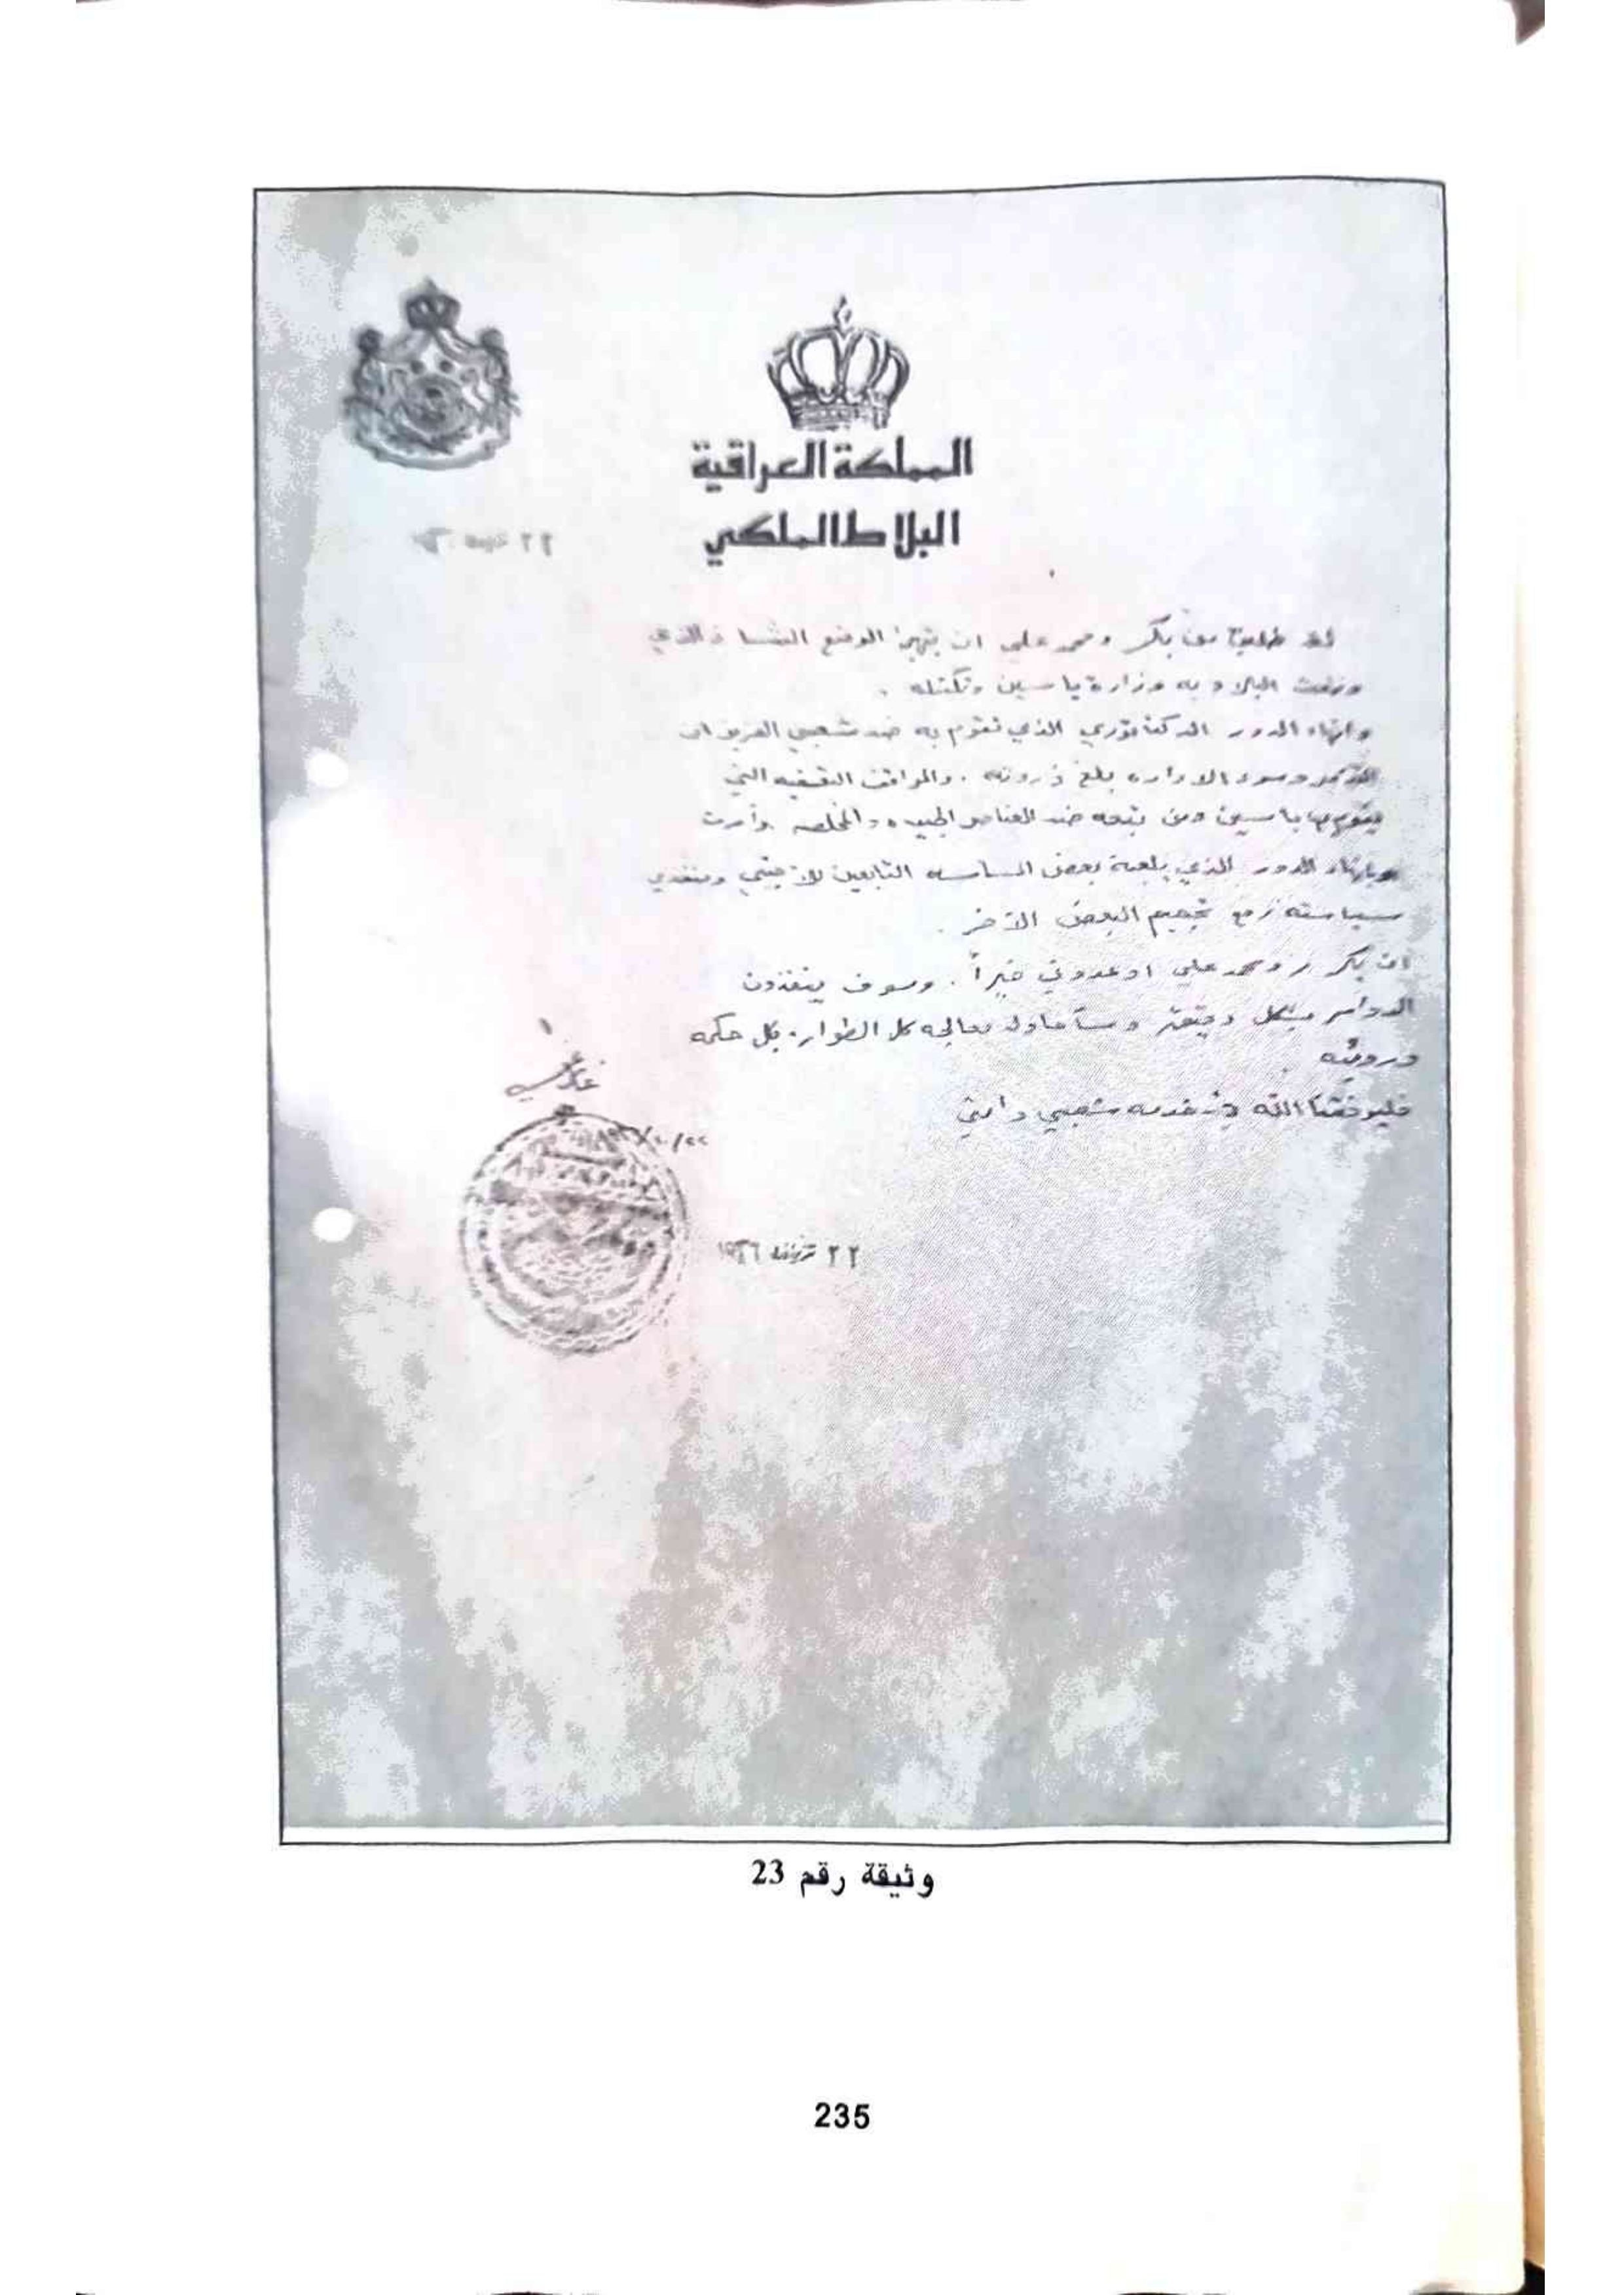 المملكة العراقية
البلاط الملكي
٢٢
لقد طلبت من بكر ومحمد علي ان ينهي الوضع الشاذ الذي
وضعت البلاد به وزارة ياسين وتكتله .
وانهاء الدور الدكتاتوري الذي تقوم به ضد شعبي العزيز ان
وسوء الاداره بلغ ذروته . والمواقف التي
يقوم بها ياسين ومن يتبعه ضد العناصر الجيده والمخلصه
الدور الذي يلعبه بعض الساسه التابعين للاجنبي ومنفذي
سياسته مع تحجيم البعض الآخر .
ان بكر ومحمد علي اوعدوني خيراً . وسوف ينفذون
الاوامر بشكل دقيق وسأحاول معالجه كل الطوارئ بكل حكمه
ورويه
فليوفقنا الله في خدمه شعبي وامتي
غازي
٢٢ ١٩٣٦
وثيقة رقم 23
235